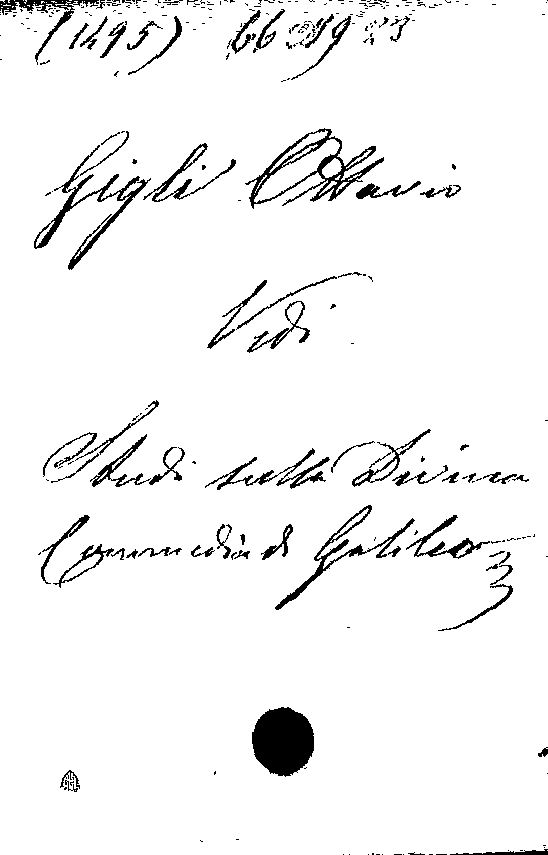 (1495) 66 D9 23
Gigli Ottavio
Vedi
Studi sulla Divina
Commedia di Galileo